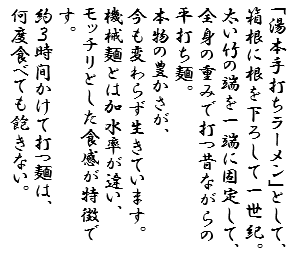 「湯本手打ちラーメン」として、
箱根に根を下ろして一世紀。
太い竹の端を一端に固定して、
全身の重みで打つ昔ながらの
平打ち麺。
本物の豊かさが、
今も変わらず生きています。
機械麺とは加水率が違い、
モッチリとした食感が特徴で
す。
約３時間かけて打つ麺は、
何度食べても飽きない。